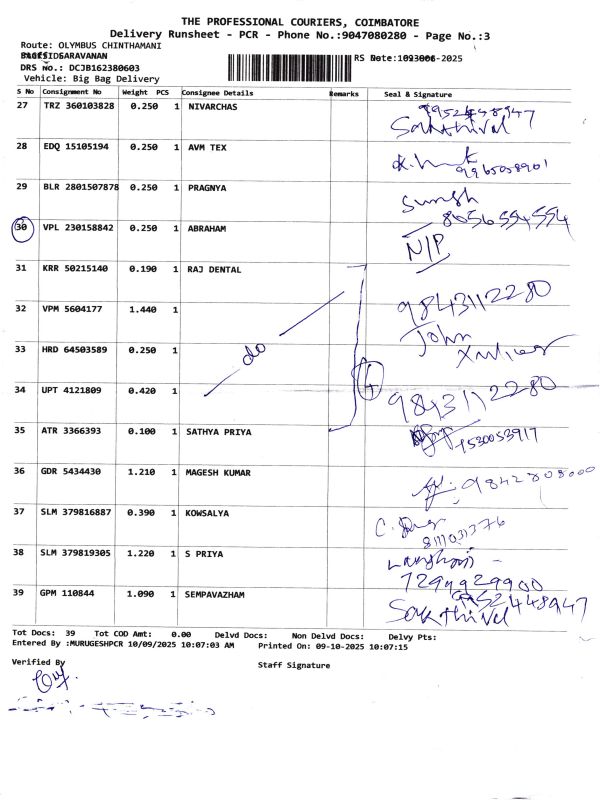 THE PROFESSIONAL COURIERS, COIMBATORE
Delivery Runsheet - PCR - Phone No.:9047080280 - Page No.:3
Route: OLYMBUS CHINTHAMANI
DRS No.: DCJB162380603
Vehicle: Big Bag Delivery
S No Consignment No Weight PCS Consignee Details Remarks Seal & Signature
27 TRZ 360103828 0.250 1 NIVARCHAS 9952448947 Sakthivel
28 EDQ 15105194 0.250 1 AVM TEX 9965058901
29 BLR 2801507878 0.250 1 PRAGNYA Sumsh 8056554554
30 VPL 230158842 0.250 1 ABRAHAM N/P
31 KRR 50215140 0.190 1 RAJ DENTAL 9843112280
32 VPM 5604177 1.440 1 John
33 HRD 64503589 0.250 1 do
34 UPT 4121809 0.420 1 4 9843112280
35 ATR 3366393 0.100 1 SATHYA PRIYA 7530053917
36 GDR 5434430 1.210 1 MAGESH KUMAR 9842808000
37 SLM 379816887 0.390 1 KOWSALYA
38 SLM 379819305 1.220 1 S PRIYA 7299929900
39 GPM 110844 1.090 1 SEMPAVAZHAM 9952448947 Sakthivel
Tot Docs: 39 Tot COD Amt: 0.00 Delvd Docs: Non Delvd Docs: Delvy Pts:
Entered By :MURUGESHPCR 10/09/2025 10:07:03 AM Printed On: 09-10-2025 10:07:15
Verified By Staff Signature